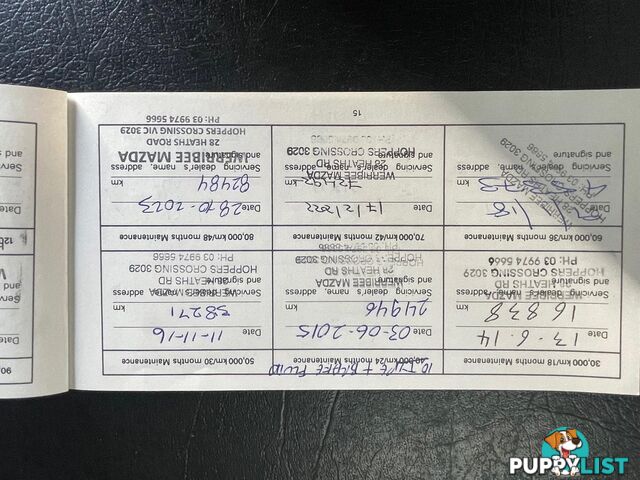 30,000 km/18 months Maintenance
Date 13-6-14
16838 km
Servicing dealer's name, address and signature
WERRIBEE MAZDA
28 HEATHS RD
HOPPERS CROSSING 3029
PH: 03 9974 5666
km/24 months Maintenance
+ BRAKE FLUID
Date 03-06-2015
24946 km
Servicing dealer's name, address and signature
WERRIBEE MAZDA
28 HEATHS RD
HOPPERS CROSSING 3029
50,000 km/30 months Maintenance
Date 11-11-16
38271 km
Servicing dealer's name, address and signature
WERRIBEE MAZDA
28 HEATHS RD
HOPPERS CROSSING 3029
PH: 03 9974 5666
60,000 km/36 months Maintenance
Date
km
Servicing dealer's name, address and signature
70,000 km/42 months Maintenance
Date 17/2/2022
km
Servicing dealer's name, address and signature
WERRIBEE MAZDA
28 HEATHS RD
HOPPERS CROSSING 3029
80,000 km/48 months Maintenance
Date 28-10-2023
82484 km
Servicing dealer's name, address and signature
WERRIBEE MAZDA
28 HEATHS ROAD
HOPPERS CROSSING VIC 3029
PH: 03 9974 5666
15
90,
Date
Servicing
and
Date
Servicing
and
PUPPYLIST
.COM.AU